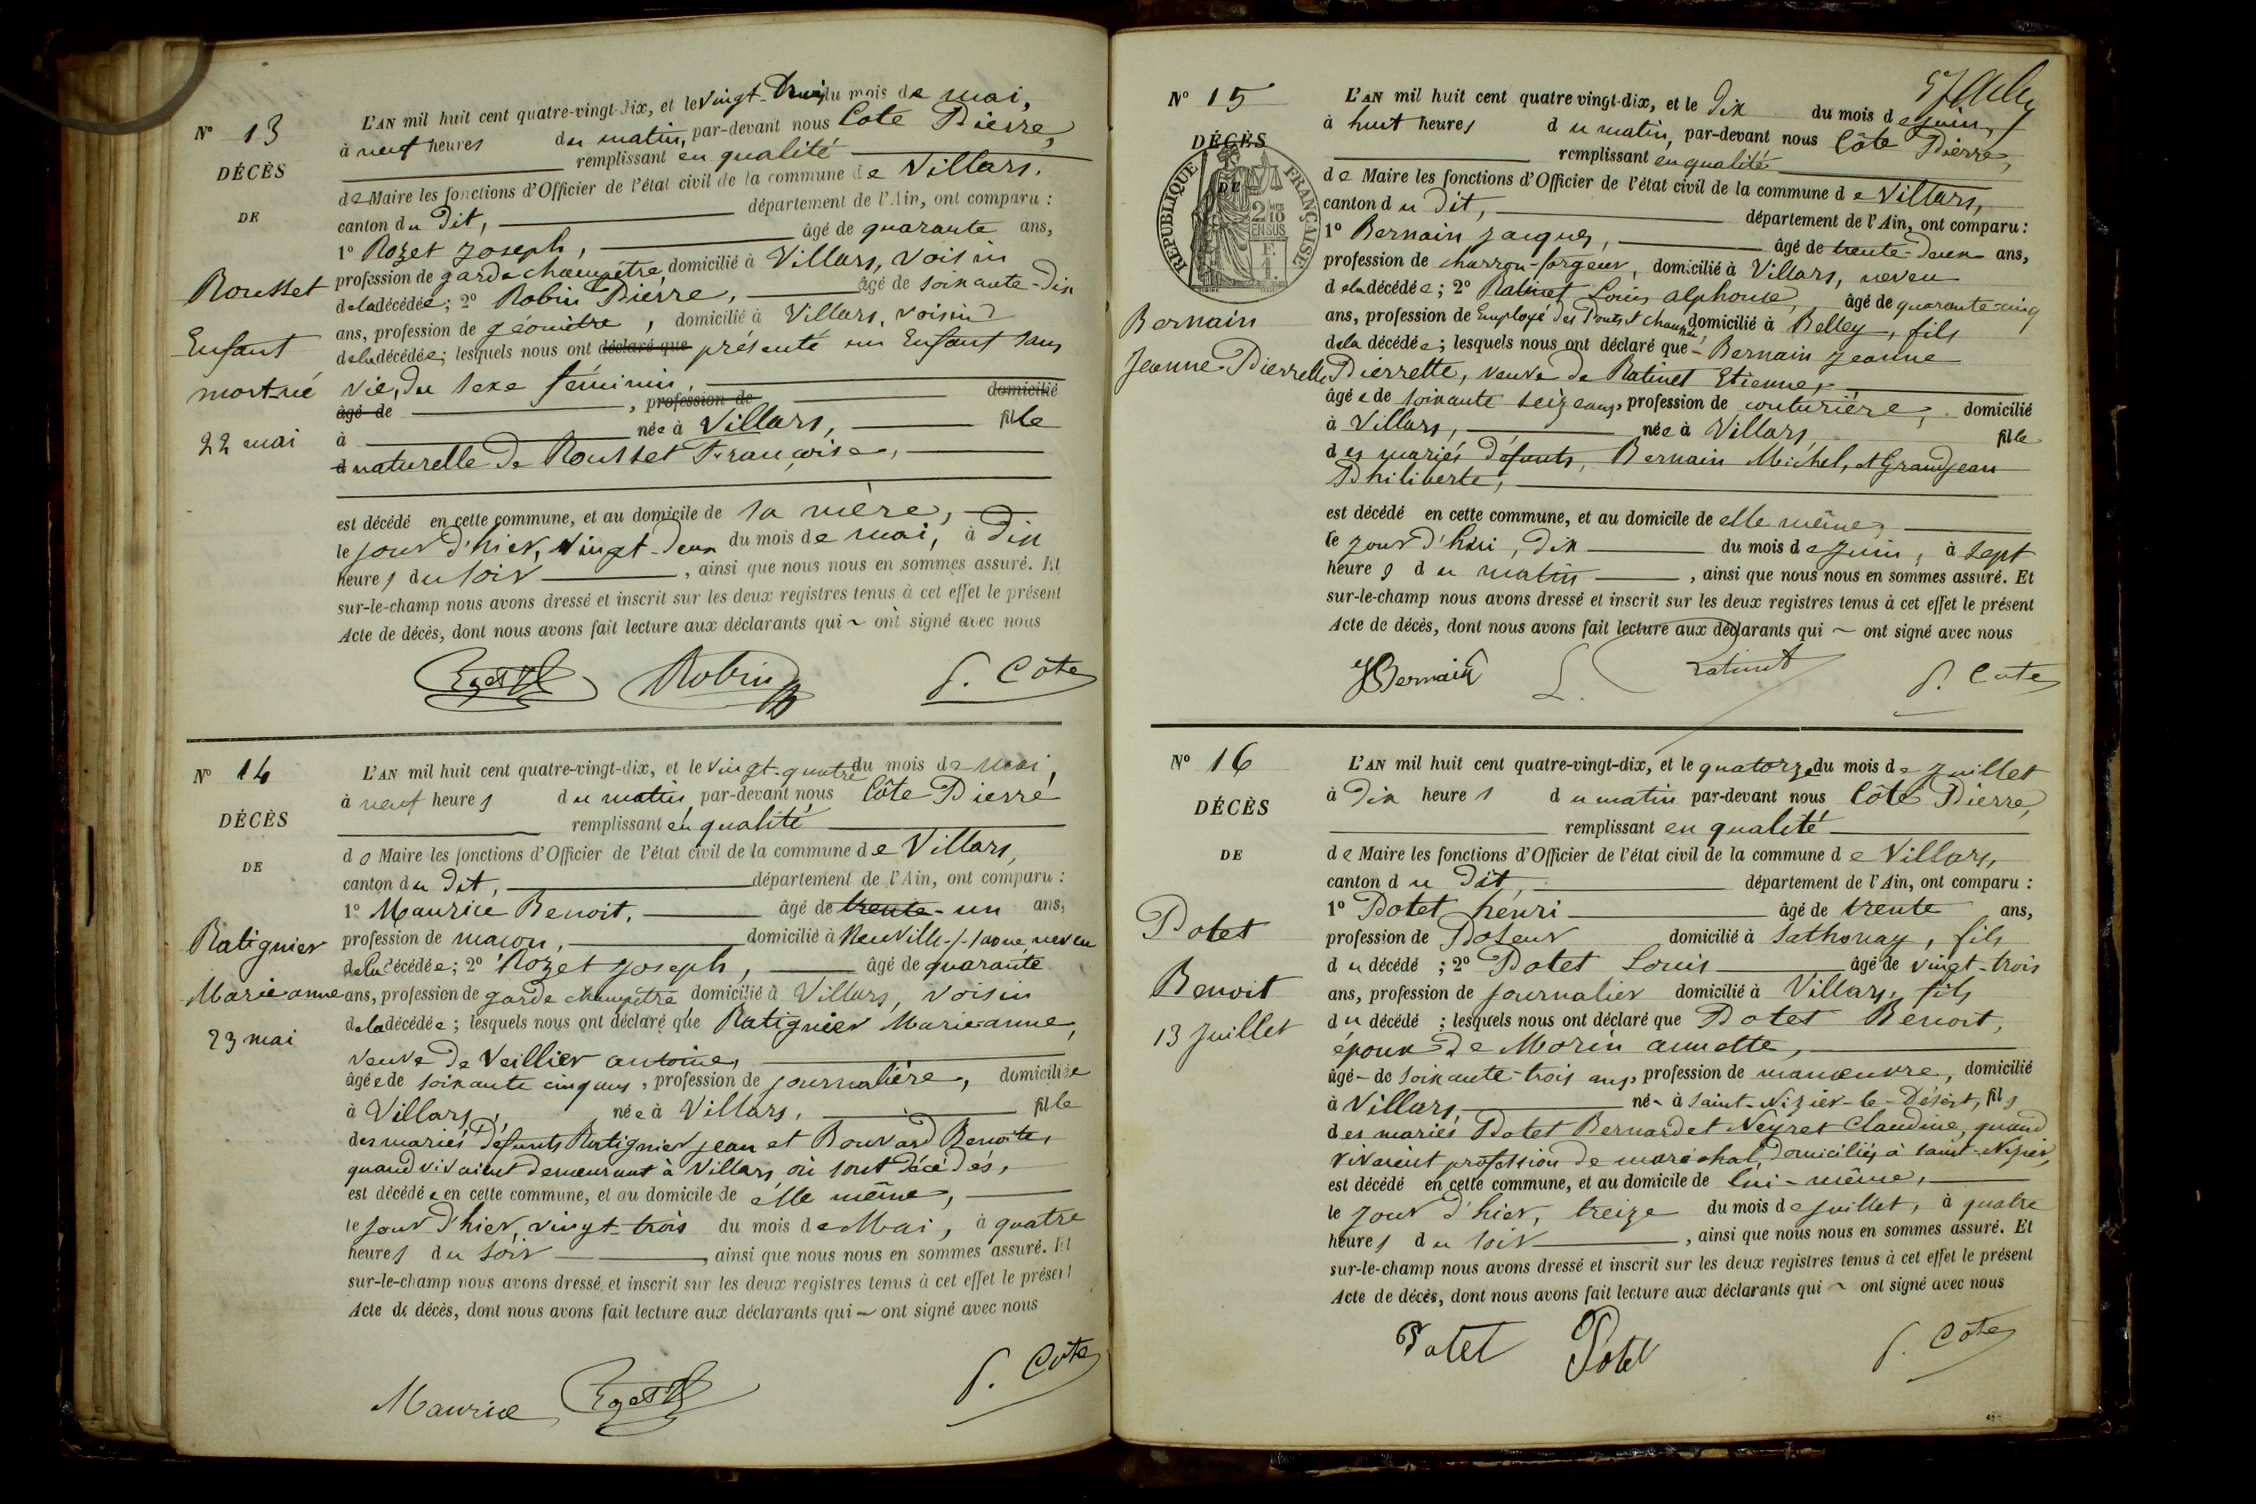 N° 13
DÉCÈS
DE
Rousset
Enfant
mort-né
22 mai
L'AN mil huit cent quatre-vingt-dix, et le vingt-trois du mois de mai,
à neuf heures du matin, par-devant nous Côte Pierre,
remplissant en qualité
de Maire les fonctions d'Officier de l'état civil de la commune de Villars,
canton du dit, département de l'Ain, ont comparu :
1° Rozet Joseph, âgé de quarante ans,
profession de garde champêtre, domicilié à Villars, voisin
de la décédée ; 2° Robin Pierre, âgé de soixante-dix
ans, profession de géomètre, domicilié à Villars, voisin
de la décédée ; lesquels nous ont déclaré que présenté un Enfant sans
vie, du sexe féminin,
âgé de , profession de domicilié
à née à Villars, fille
d naturelle de Rousset Françoise,
est décédé en cette commune, et au domicile de sa mère,
le jour d'hier, vingt-deux du mois de mai, à dix
heures du soir , ainsi que nous nous en sommes assuré. Et
sur-le-champ nous avons dressé et inscrit sur les deux registres tenus à cet effet le présent
Acte de décès, dont nous avons fait lecture aux déclarants qui ~ ont signé avec nous
Robin P. Côte
N° 14
DÉCÈS
DE
Ratignier
Marie anne
23 mai
L'AN mil huit cent quatre-vingt-dix, et le vingt-quatre du mois de mai,
à neuf heures du matin, par-devant nous Côte Pierre
remplissant en qualité
de Maire les fonctions d'Officier de l'état civil de la commune de Villars,
canton du dit, département de l'Ain, ont comparu :
1° Maurice Benoit, âgé de trente-un ans,
profession de maçon, domicilié à Neuville-s-saone, neveu
de la décédée ; 2° Rozet Joseph, âgé de quarante
ans, profession de garde champêtre domicilié à Villars, voisin
de la décédée ; lesquels nous ont déclaré que Ratignier Marie anne,
veuve de Veillier antoine,
âgée de soixante cinq ans, profession de journalière, domiciliée
à Villars, née à Villars, fille
des mariés défunts Ratignier jean et Bouvard Benoite,
quand vivaient demeurant à Villars, où sont décédés,
est décédée en cette commune, et au domicile de elle même,
le jour d'hier, vingt-trois du mois de Mai, à quatre
heures du soir , ainsi que nous nous en sommes assuré. Et
sur-le-champ nous avons dressé et inscrit sur les deux registres tenus à cet effet le présent
Acte de décès, dont nous avons fait lecture aux déclarants qui ~ ont signé avec nous
Maurice P. Côte
N° 15
DÉCÈS
DE
RÉPUBLIQUE FRANÇAISE
2/10 EN SUS
Bernain
Jeanne-Pierrette
L'AN mil huit cent quatre vingt-dix, et le dix du mois de juin,
à huit heures du matin, par-devant nous Côte Pierre,
remplissant en qualité
de Maire les fonctions d'Officier de l'état civil de la commune de Villars,
canton du dit, département de l'Ain, ont comparu :
1° Bernain jacques, âgé de trente-deux ans,
profession de charron-forgeur, domicilié à Villars, neveu
de la décédée ; 2° Ratinet Louis alphonse, âgé de quarante-cinq
ans, profession de Employé des Ponts & chaussées domicilié à Belley, fils
de la décédée ; lesquels nous ont déclaré que Bernain jeanne
Pierrette, veuve de Ratinet Etienne,
âgée de soixante seize ans, profession de couturière, domicilié
à Villars, née à Villars, fille
des mariés défunts, Bernain Michel, et Grandjean
Philiberte,
est décédé en cette commune, et au domicile de elle même,
le jour d'hui, dix du mois de juin, à sept
heures du matin , ainsi que nous nous en sommes assuré. Et
sur-le-champ nous avons dressé et inscrit sur les deux registres tenus à cet effet le présent
Acte de décès, dont nous avons fait lecture aux déclarants qui ~ ont signé avec nous
JBernain L. Ratinet P. Côte
N° 16
DÉCÈS
DE
Potet
Benoit
13 Juillet
L'AN mil huit cent quatre-vingt-dix, et le quatorze du mois de juillet
à dix heures du matin par-devant nous Côte Pierre,
remplissant en qualité
de Maire les fonctions d'Officier de l'état civil de la commune de Villars,
canton du dit, département de l'Ain, ont comparu :
1° Potet henri âgé de trente ans,
profession de Poseur domicilié à Sathonay, fils
du décédé ; 2° Potet Louis âgé de vingt-trois
ans, profession de journalier domicilié à Villars, fils
du décédé ; lesquels nous ont déclaré que Potet Benoit,
époux de Morin annette,
âgé de soixante-trois ans, profession de manœuvre, domicilié
à Villars, né à Saint-Nizier-le-Désert, fils
des mariés Potet Bernard et Neyret Claudine, quand
vivaient profession de maréchal, domiciliés à Saint-Nizier,
est décédé en cette commune, et au domicile de lui-même,
le jour d'hier, treize du mois de juillet, à quatre
heures du soir , ainsi que nous nous en sommes assuré. Et
sur-le-champ nous avons dressé et inscrit sur les deux registres tenus à cet effet le présent
Acte de décès, dont nous avons fait lecture aux déclarants qui ~ ont signé avec nous
Potet Potet P. Côte